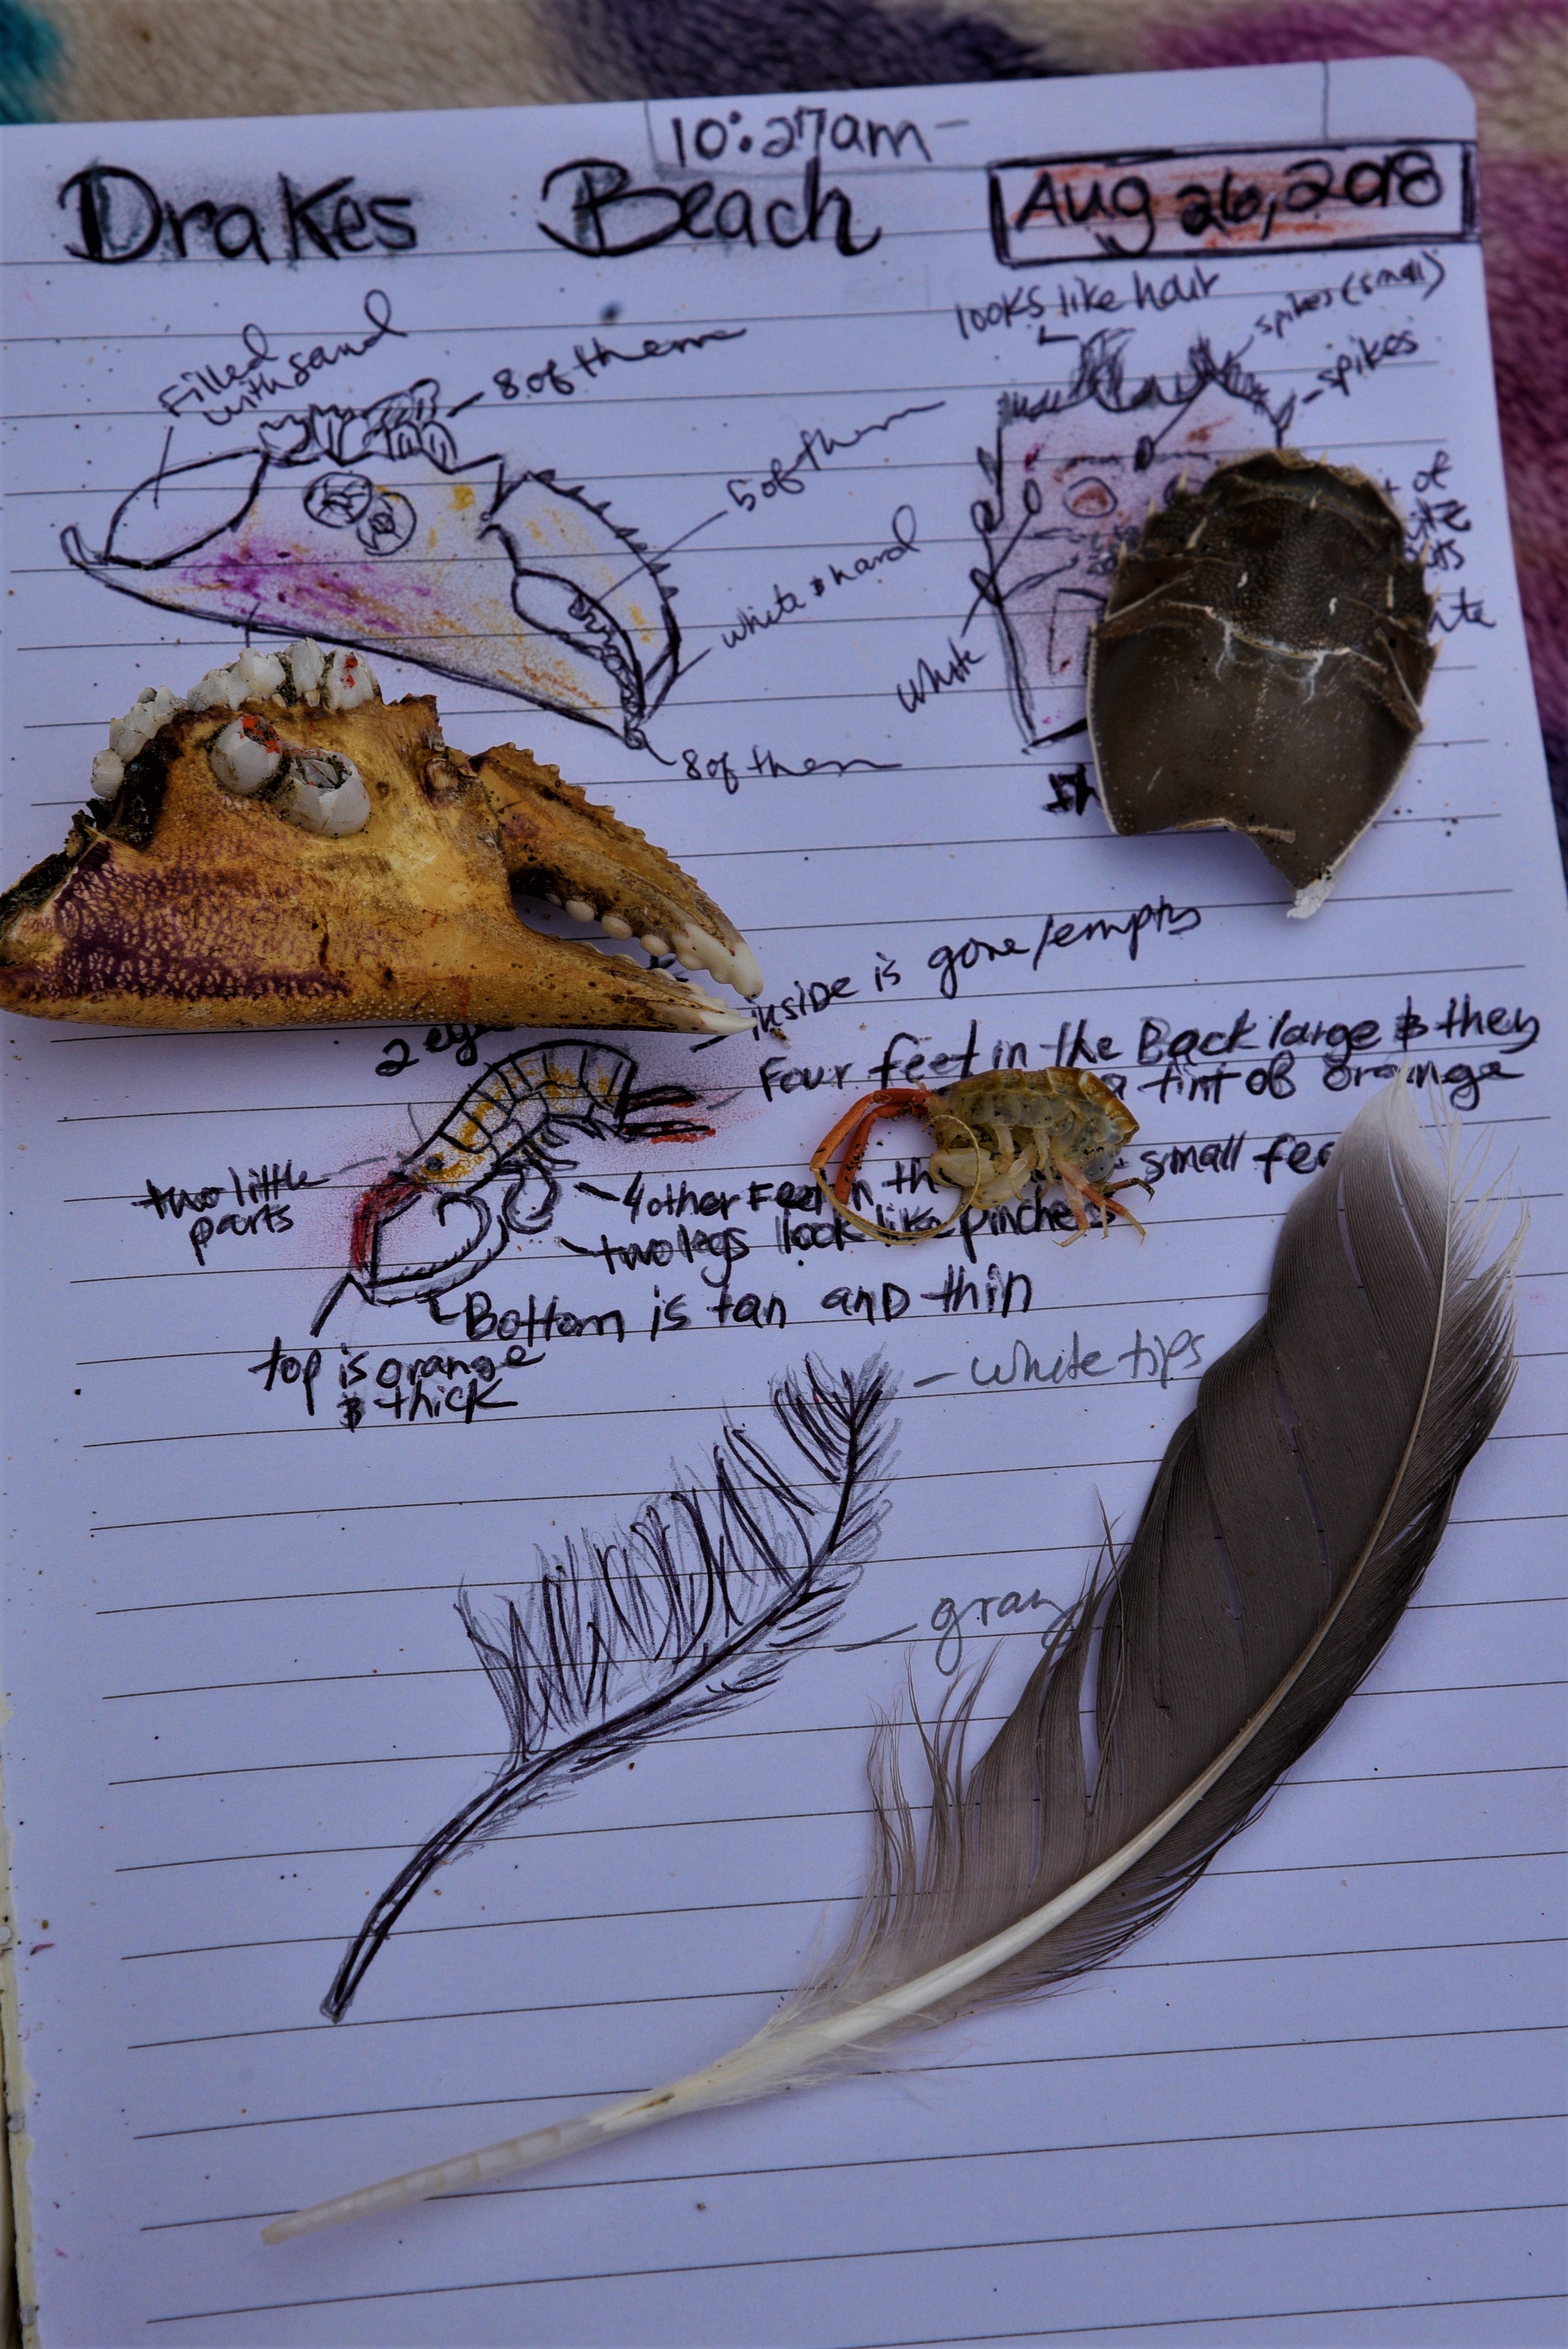 10:27am-
Drakes Beach
Aug 26, 2018
Filled
with sand
8 of them
5 of them
white & hard
8 of them
looks like hair
spikes (small)
spikes
of
white
inside is gone/empty
2
Four feet in the Back large & they
a tint of orange
two little
parts
4 other Feet in th
small fee
two legs look like pinchers
Bottom is tan and thin
top is orange
& thick
- white tips
- gray